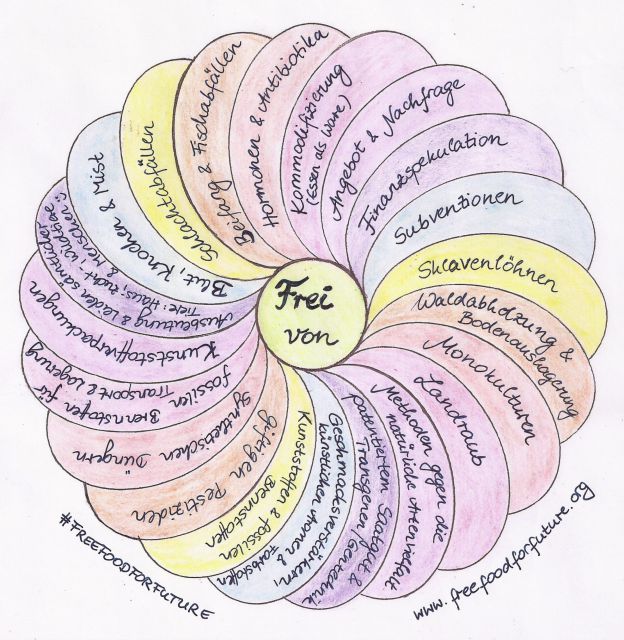 Frei
von
Hormonen & Antibiotika
Kommodifizierung
(Essen als Ware)
Angebot & Nachfrage
Finanzspekulation
Subventionen
Sklavenlöhnen
Waldabholzung &
Bodenauslagerung
Monokulturen
Landraub
Methoden gegen die
natürliche Artenvielfalt
patentiertem Saatgut &
Transgenen
Gentechnik
Geschmacksverstärkern,
künstlichen Aromen &
Farbstoffen
Kunststoffen & fossilen
Brennstoffen
giftigen Pestiziden
synthetischen Düngern
fossilen Brennstoffen für
Transport & Lagerung
Kunststoffverpackungen
Ausbeutung & Leiden
Tiere: Haus-
& Menschen
Blut, Knochen & Mist
Schlachtabfällen
Beifang & Fischabfällen
#FREEFOODFORFUTURE
www.freefoodforfuture.org